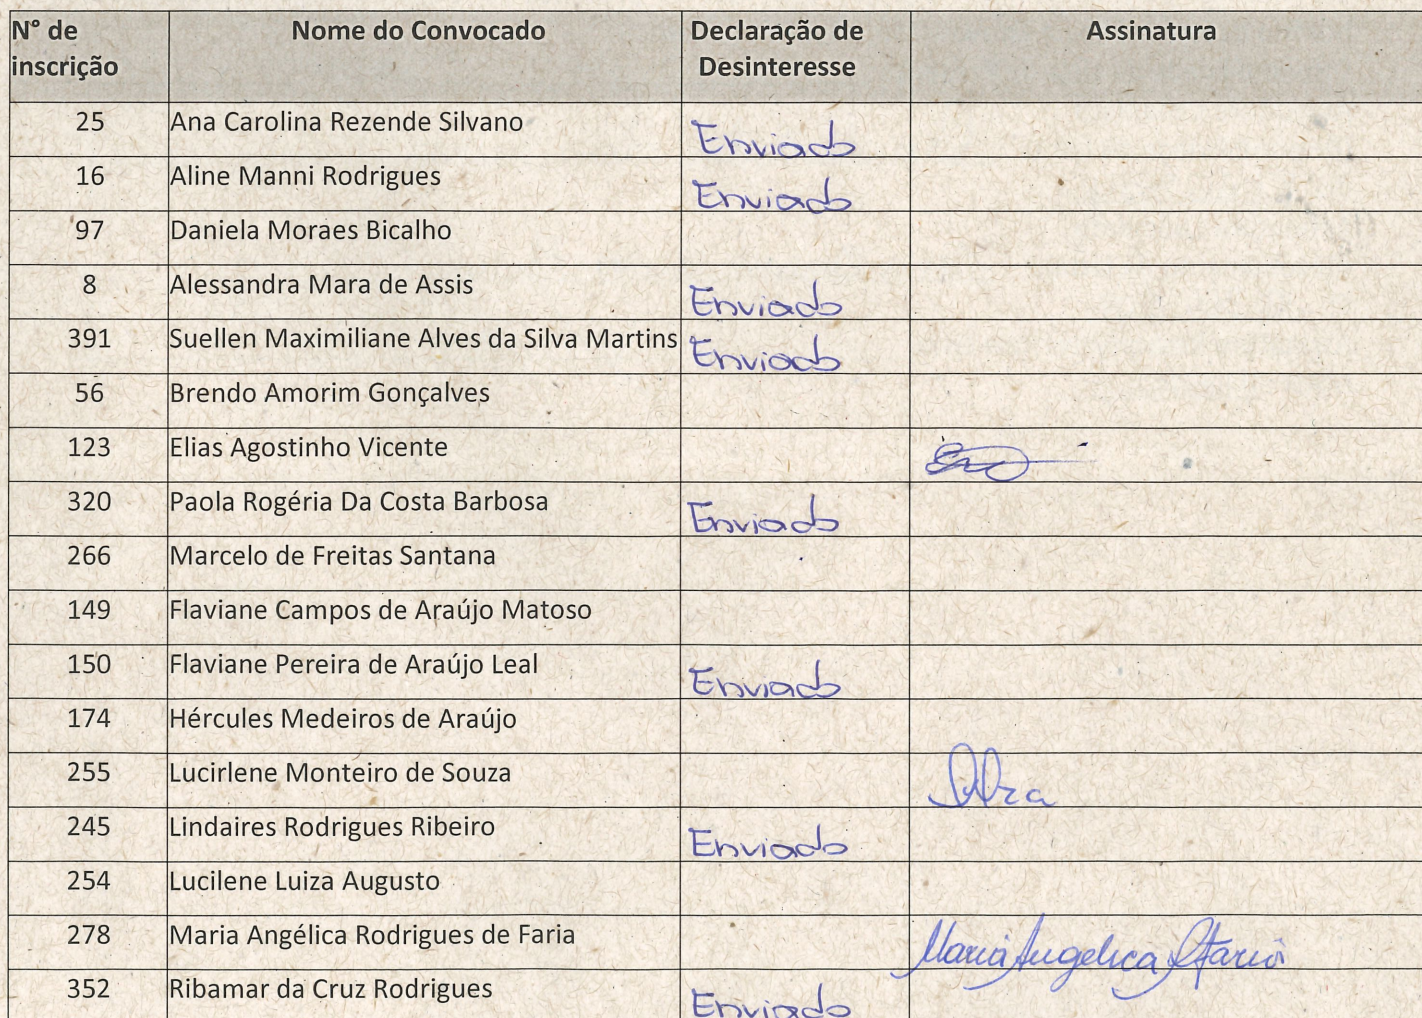 N° de inscrição Nome do Convocado Declaração de Desinteresse Assinatura
25 Ana Carolina Rezende Silvano Enviado
16 Aline Manni Rodrigues Enviado
97 Daniela Moraes Bicalho
8 Alessandra Mara de Assis Enviado
391 Suellen Maximiliane Alves da Silva Martins Enviado
56 Brendo Amorim Gonçalves
123 Elias Agostinho Vicente
320 Paola Rogéria Da Costa Barbosa Enviado
266 Marcelo de Freitas Santana
149 Flaviane Campos de Araújo Matoso
150 Flaviane Pereira de Araújo Leal Enviado
174 Hércules Medeiros de Araújo
255 Lucirlene Monteiro de Souza
245 Lindaires Rodrigues Ribeiro Enviado
254 Lucilene Luiza Augusto
278 Maria Angélica Rodrigues de Faria Maria Angelica Faria
352 Ribamar da Cruz Rodrigues Enviado